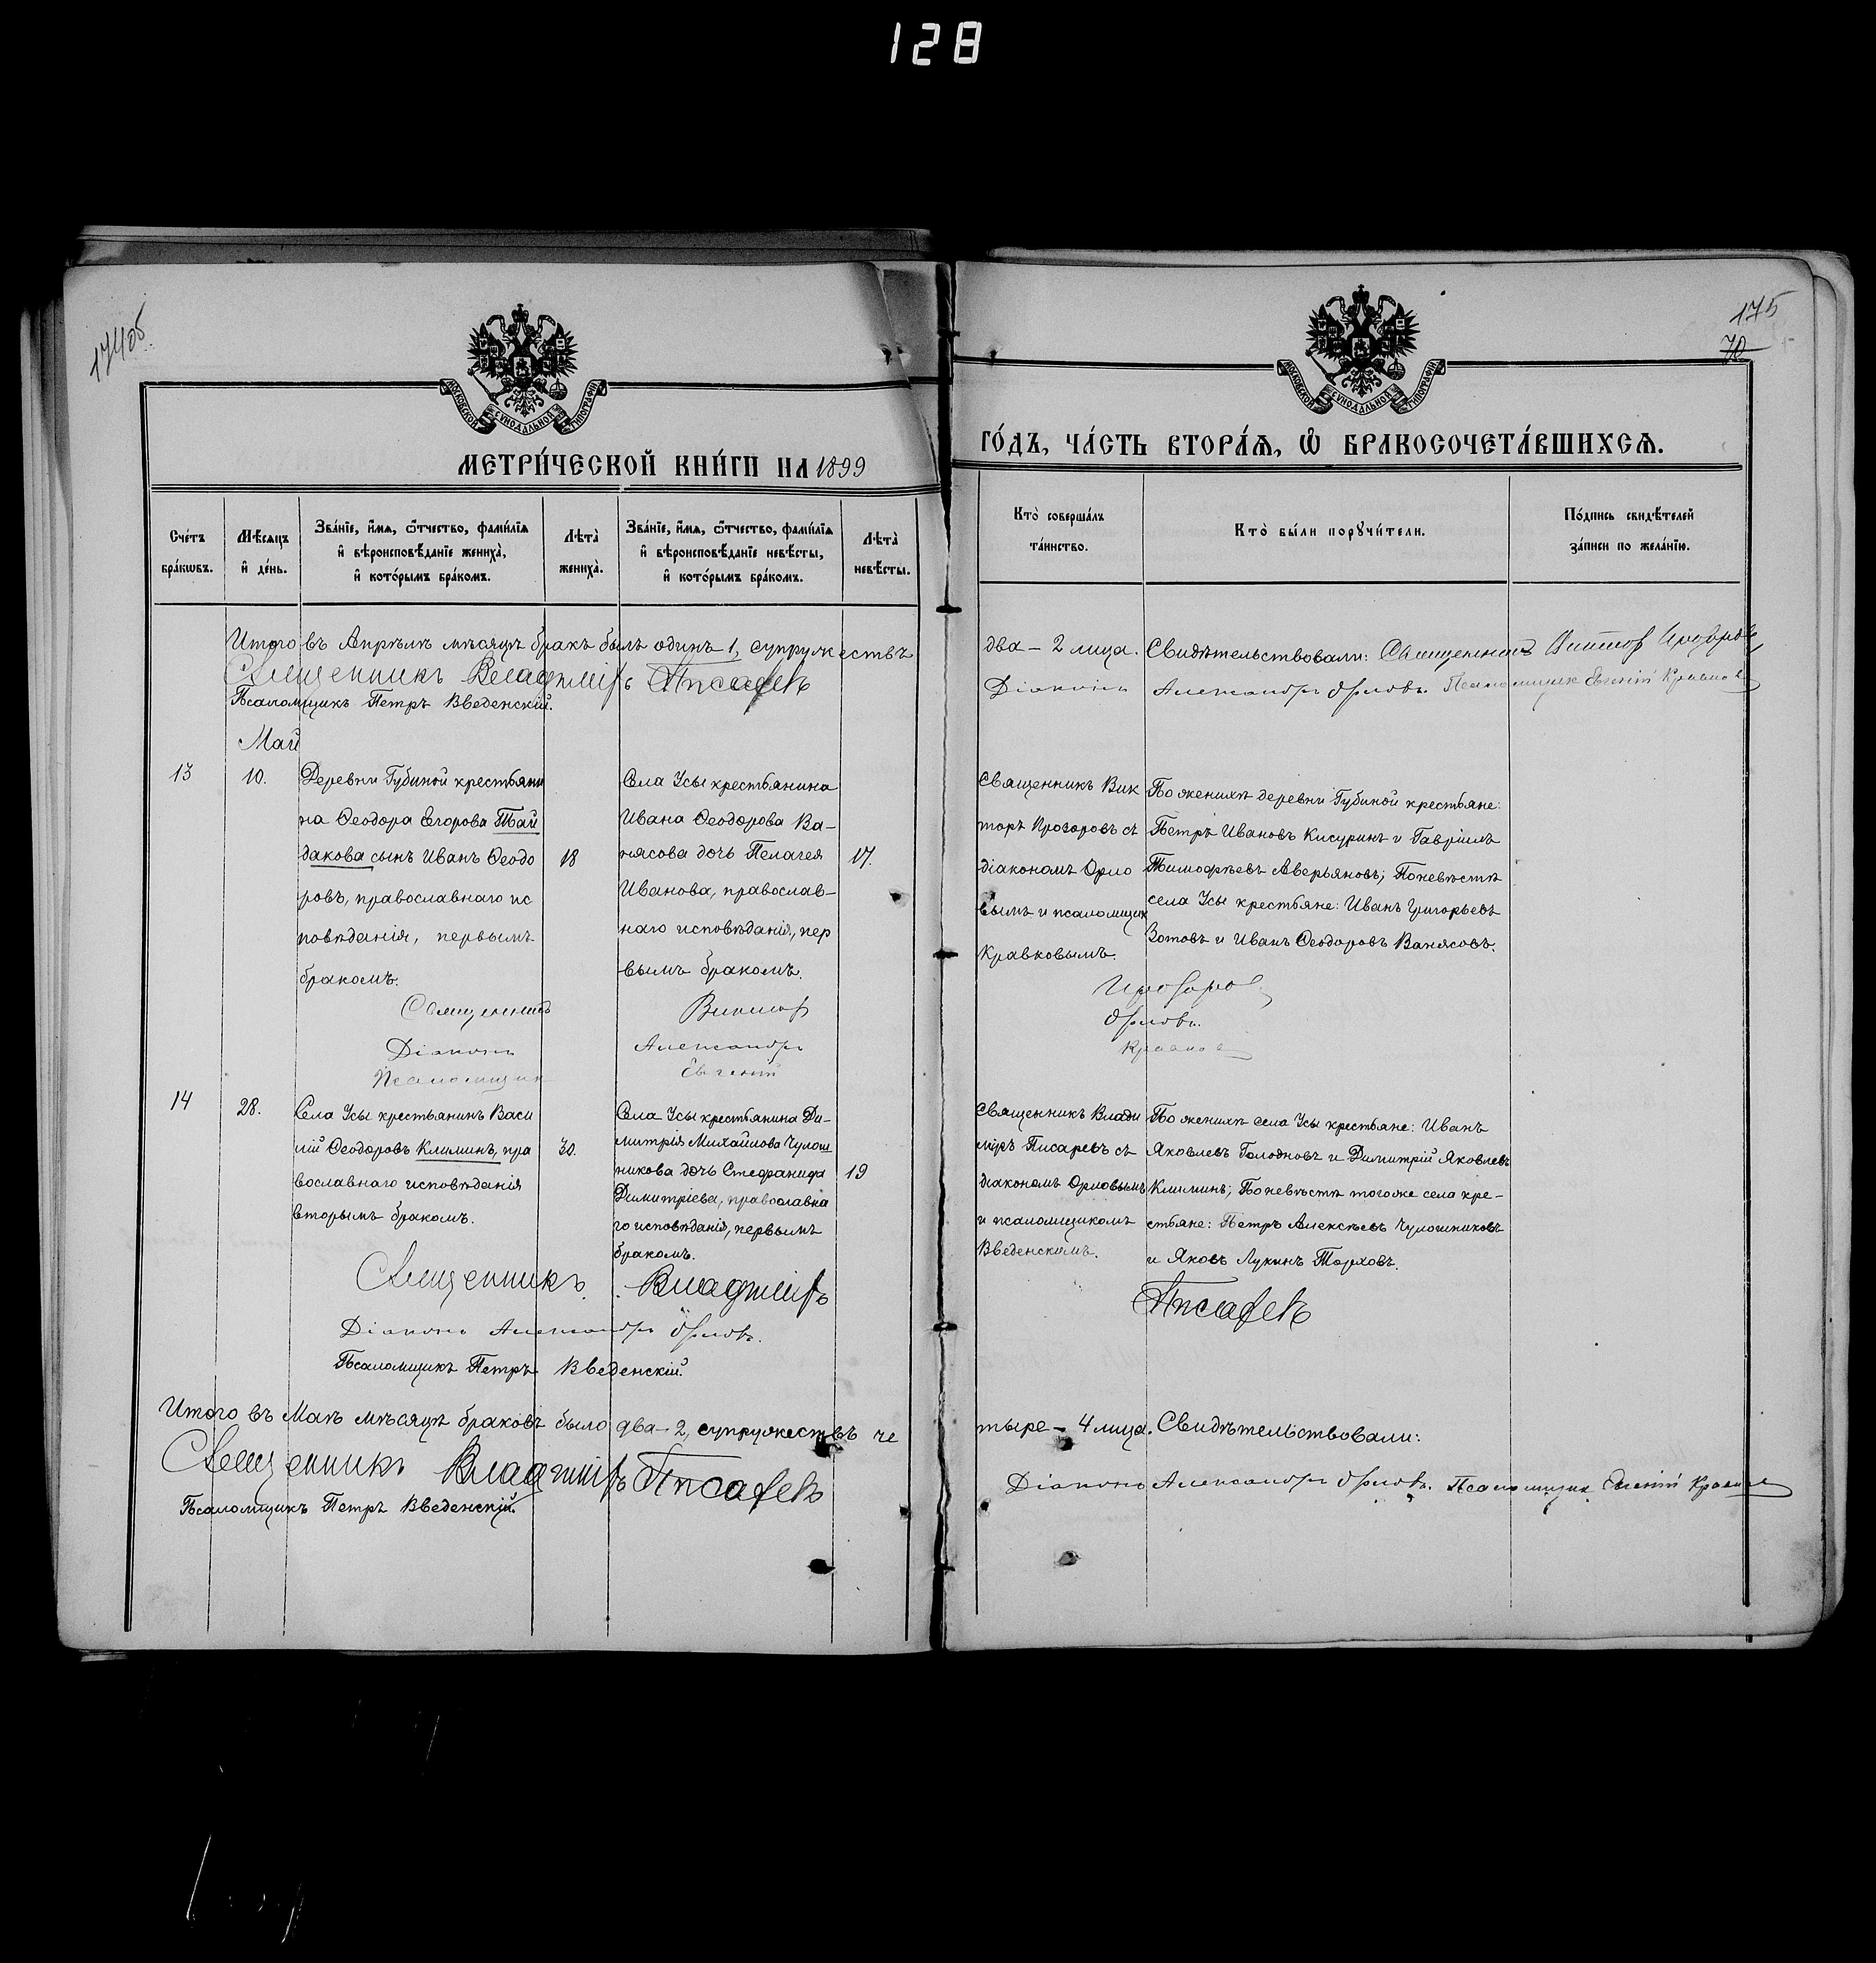 128
174об.
175
70
МОСКОВСКОЙ СѴНОДАЛЬНОЙ ТИПОГРАФІИ
МОСКОВСКОЙ СѴНОДАЛЬНОЙ ТИПОГРАФІИ
МЕТРИ́ЧЕСКОЙ КНИ́ГИ НА 1899
ГО́ДЪ, ЧА́СТЬ ВТОРА́Ѧ, Ѽ БРАКОСОЧЕТА́ВШИХСѦ.
Сче́тъ
бра́кѡвъ.
Мѣ́сѧцъ
и҆ де́нь.
Зва́нїе, и҆́мѧ, ѻ҆́тчество, фами́лїѧ
и҆ вѣроисповѣ́данїе жениха̀,
и҆ кото́рымъ бра́комъ.
Лѣта̀
жениха̀.
Зва́нїе, и҆́мѧ, ѻ҆́тчество, фами́лїѧ
и҆ вѣроисповѣ́данїе невѣ́сты,
и҆ кото́рымъ бра́комъ.
Лѣта̀
невѣ́сты.
Кто̀ соверша́лъ
та́инство.
Кто̀ бы́ли порꙋчи́тели.
По́дпись свидѣ́телей
за́писи по жела́нїю.
Итого въ Апрѣлѣ мѣсяцѣ бракъ былъ одинъ 1, супружествъ
два – 2 лица. Свидѣтельствовали: Священникъ Викторъ Прозоровъ
Священникъ Владиміръ Писаревъ
Діаконъ Александръ Орловъ. Псаломщикъ Евгеній Кравковъ
Псаломщикъ Петръ Введенскій.
Май
13
10.
Деревни Губиной крестьяни
на Ѳеодора Егорова Тай
дакова сынъ Иванъ Ѳеодо
ровъ, православнаго ис
повѣданія, первымъ
бракомъ.
18
Села Усы крестьянина
Ивана Ѳеодорова Ва–
нясова дочь Пелагея
Иванова, православ–
наго исповѣданія, пер
вымъ бракомъ.
17.
Священникъ Вик
торъ Прозоровъ съ
діакономъ Орло
вымъ и псаломщик
Кравковымъ.
По женихѣ деревни Губиной крестьяне:
Петръ Ивановъ Кисуринъ и Гавріилъ
Тимофѣевъ Аверьяновъ; По невѣстѣ
села Усы крестьяне: Иванъ Григорьевъ
Зотовъ и Иванъ Ѳеодоровъ Ванясовъ.
Священникъ Викторъ Прозоровъ
Діаконъ Александръ Орловъ.
Псаломщикъ Евгеній Кравковъ
14
28.
Села Усы крестьянинъ Васи
лій Ѳеодоровъ Климинъ, пра
вославнаго исповѣданія
вторымъ бракомъ.
30.
Села Усы крестьянина Ди–
митрія Михайлова Чулош
никова дочь Стефанида
Димитріева, православна
го исповѣданія, первымъ
бракомъ.
19
Священникъ Влади
міръ Писаревъ съ
діакономъ Орловымъ
и псаломщикомъ
Введенскимъ.
По женихѣ села Усы крестьяне: Иванъ
Яковлевъ Голодновъ и Димитрій Яковлевъ
Климинъ; По невѣстѣ тогоже села кре–
стьяне: Петръ Алексѣевъ Чулошниковъ
и Яковъ Лукинъ Торховъ.
Священникъ Владиміръ
Писаревъ
Діаконъ Александръ Орловъ.
Псаломщикъ Петръ Введенскій.
Итого въ Маѣ мѣсяцѣ браковъ было два – 2, супружествъ че
тыре – 4 лица. Свидѣтельствовали:
Священникъ Владиміръ Писаревъ
Діаконъ Александръ Орловъ. Псаломщикъ Евгеній Кравковъ
Псаломщикъ Петръ Введенскій.